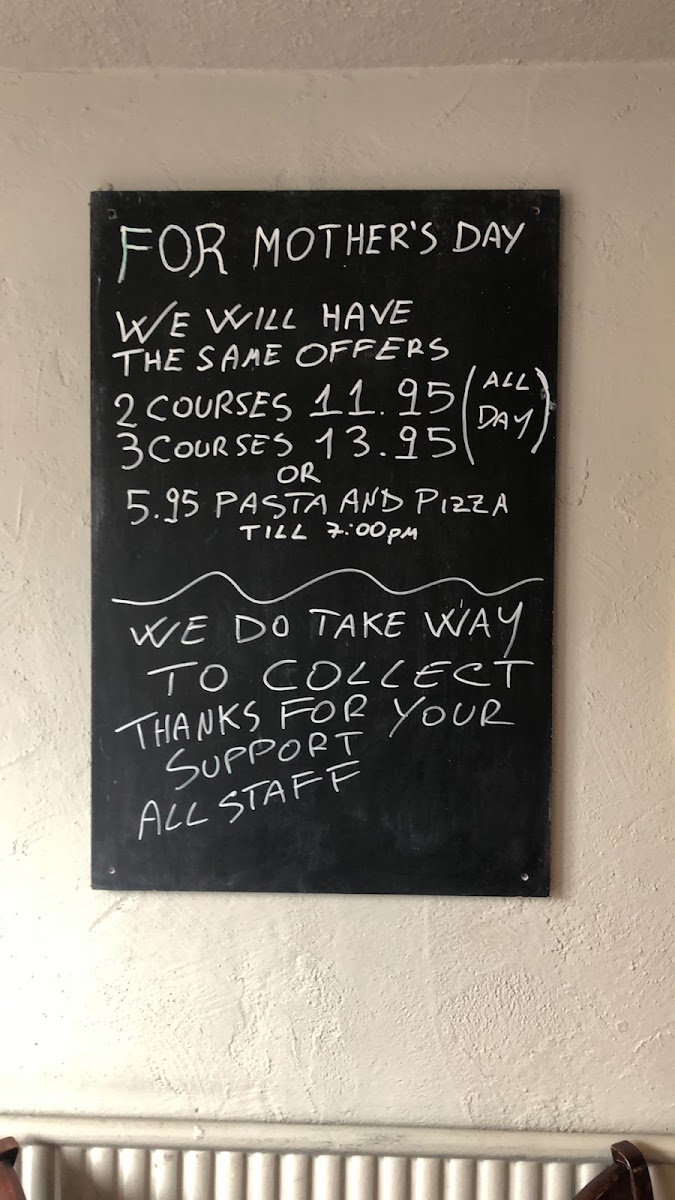 FOR MOTHER'S DAY
WE WILL HAVE
THE SAME OFFERS
2 COURSES 11.95 (ALL
3 COURSES 13.95 DAY)
OR
5.95 PASTA AND PIZZA
TILL 7:00PM
WE DO TAKE WAY
TO COLLECT
THANKS FOR YOUR
SUPPORT
ALL STAFF